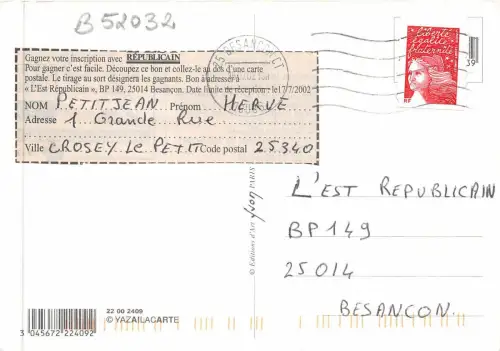 B 52032
Gagnez votre inscription avec RÉPUBLICAIN
Pour gagner c'est facile. Découpez ce bon et collez-le au dos d'une carte
postale. Le tirage au sort désignera les gagnants. Bon à adresser à
"L'Est Républicain", BP 149, 25014 Besançon. Date limite de réception : le 7/7/2002
NOM PETITJEAN Prénom HERVE
Adresse 1 Grande Rue
Ville CROSEY LE PETIT Code postal 25340
25 BESANCON CT
la Liberté
égalité
fraternité
RF
39
L'EST REPUBLICAIN
BP 149
25014
BESANCON
© Editions d'Art yvon PARIS
22 00 2409
© YAZAILACARTE
3 045672 224092